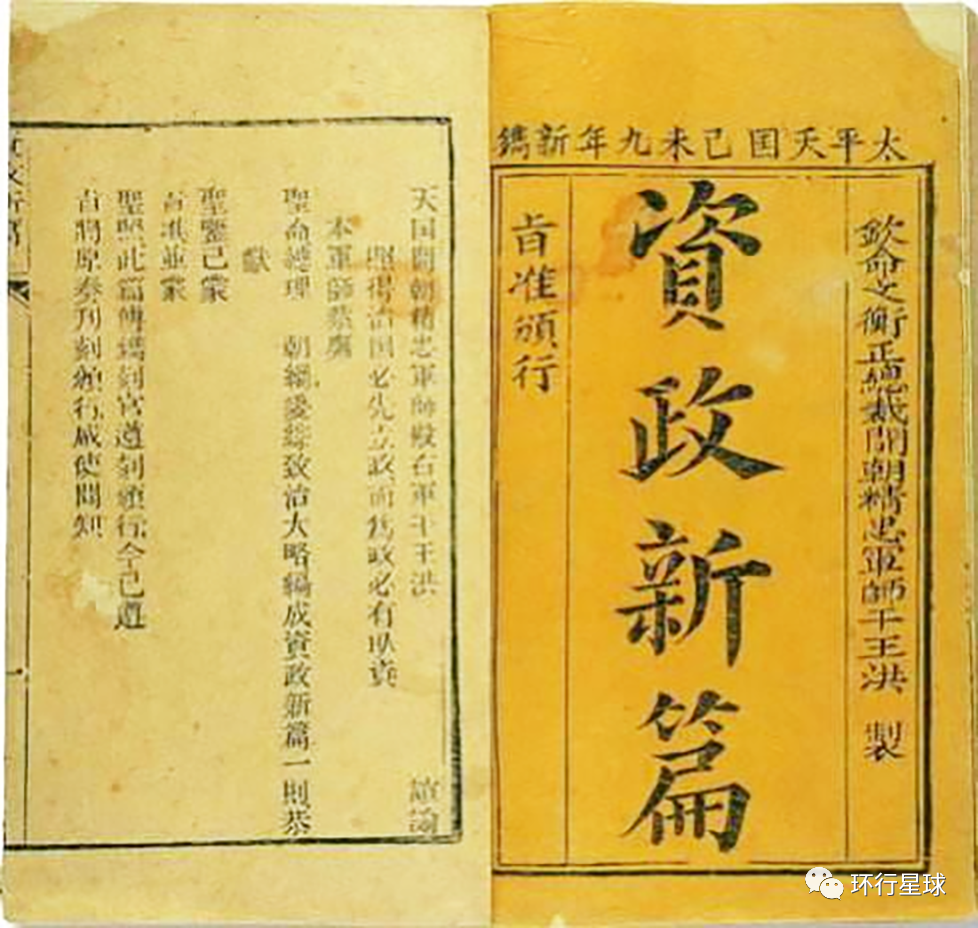 太平天囯己未九年新鐫
欽命文衡正總裁開朝精忠軍師干王洪 製
資政新篇
旨准頒行
天囯開朝精忠軍師殿右軍干王洪 諠諭
照得治囯必先立政而為政必有取資
本軍師恭膺
聖命總理 朝綱爰綜致治大略編成資政新篇一則恭
獻
聖鑒己蒙
旨准並蒙
聖照此篇傳鐫刻官遵刻頒行今己遵
旨將原奏刊刻頒行咸使聞知
一
环行星球